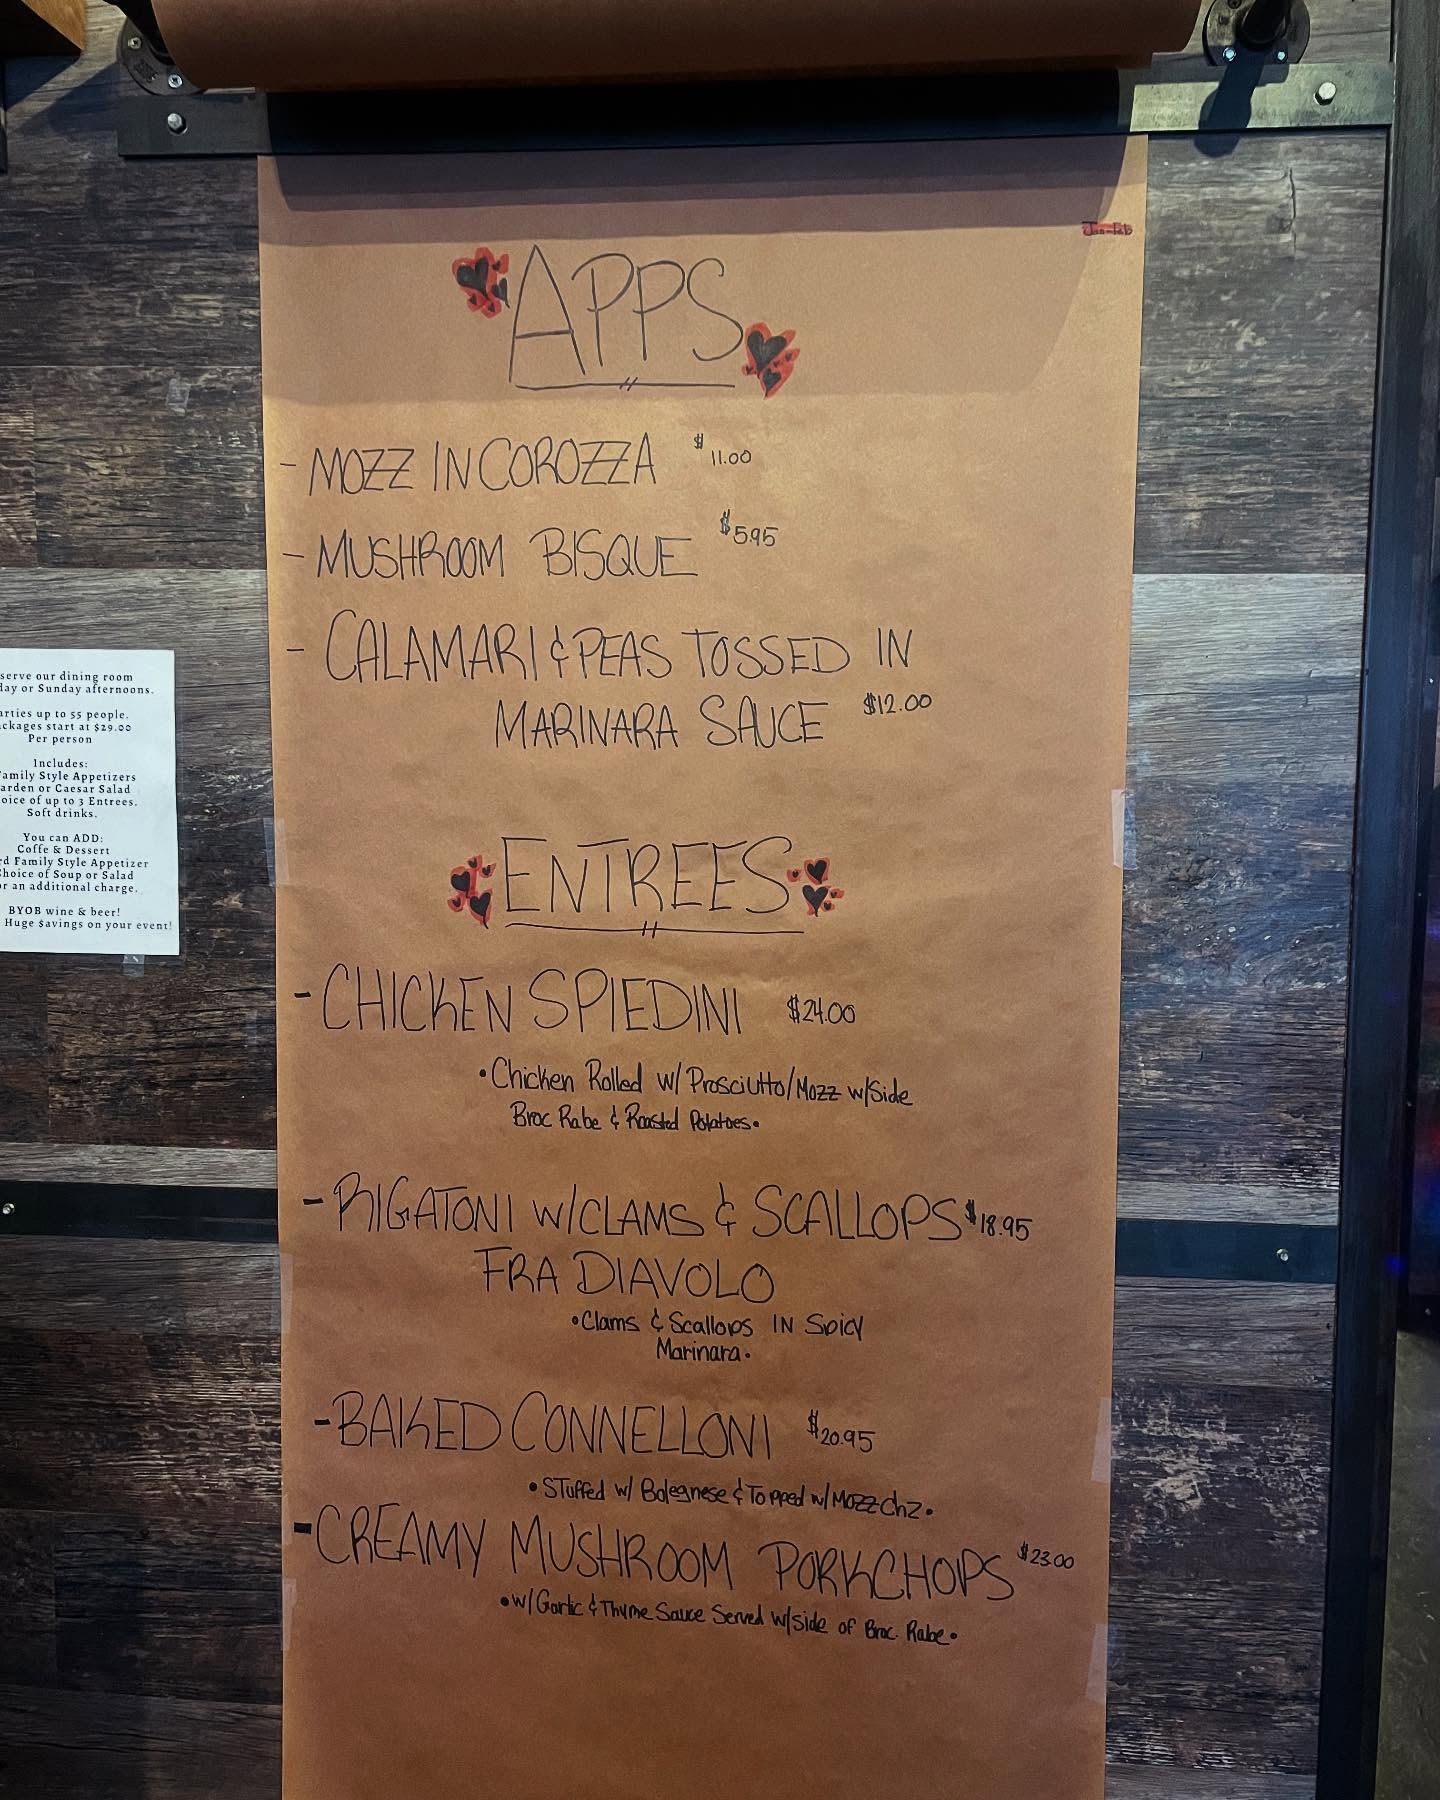 Jan-Feb
APPS
- MOZZ IN COROZZA $11.00
- MUSHROOM BISQUE $5.95
- CALAMARI & PEAS TOSSED IN
MARINARA SAUCE $12.00
ENTREES
- CHICKEN SPIEDINI $24.00
• Chicken Rolled w/ Prosciutto/Mozz w/Side
Broc Rabe & Roasted Potatoes •
- RIGATONI W/CLAMS & SCALLOPS $18.95
FRA DIAVOLO
• Clams & Scallops IN Spicy
Marinara •
- BAKED CONNELLONI $20.95
• STuffed w/ Bolegnese & Topped w/ Mozz Chz •
- CREAMY MUSHROOM PORKCHOPS $23.00
• w/ Garlic & Thyme Sauce Served w/side of Broc. Rabe •
serve our dining room
day or Sunday afternoons.
arties up to 55 people.
ckages start at $29.00
Per person
Includes:
amily Style Appetizers
arden or Caesar Salad
oice of up to 3 Entrees.
Soft drinks.
You can ADD:
Coffe & Dessert
rd Family Style Appetizer
Choice of Soup or Salad
or an additional charge.
BYOB wine & beer!
Huge $avings on your event!